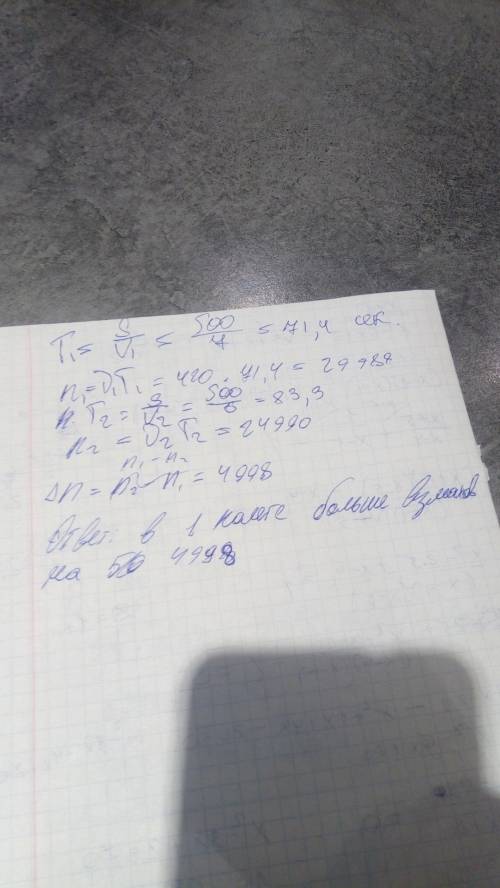 T₁ = S/υ₁ = 500/7 = 71,4 сек.
n₁ = ν₁T₁ = 420 · 71,4 = 29988
T₂ = S/υ₂ = 500/6 = 83,3
n₂ = ν₂T₂ = 24990
n₁ - n₂
Δn = n₂ - n₁ = 4998
Ответ: в 1 полете больше взмахов
на 4998